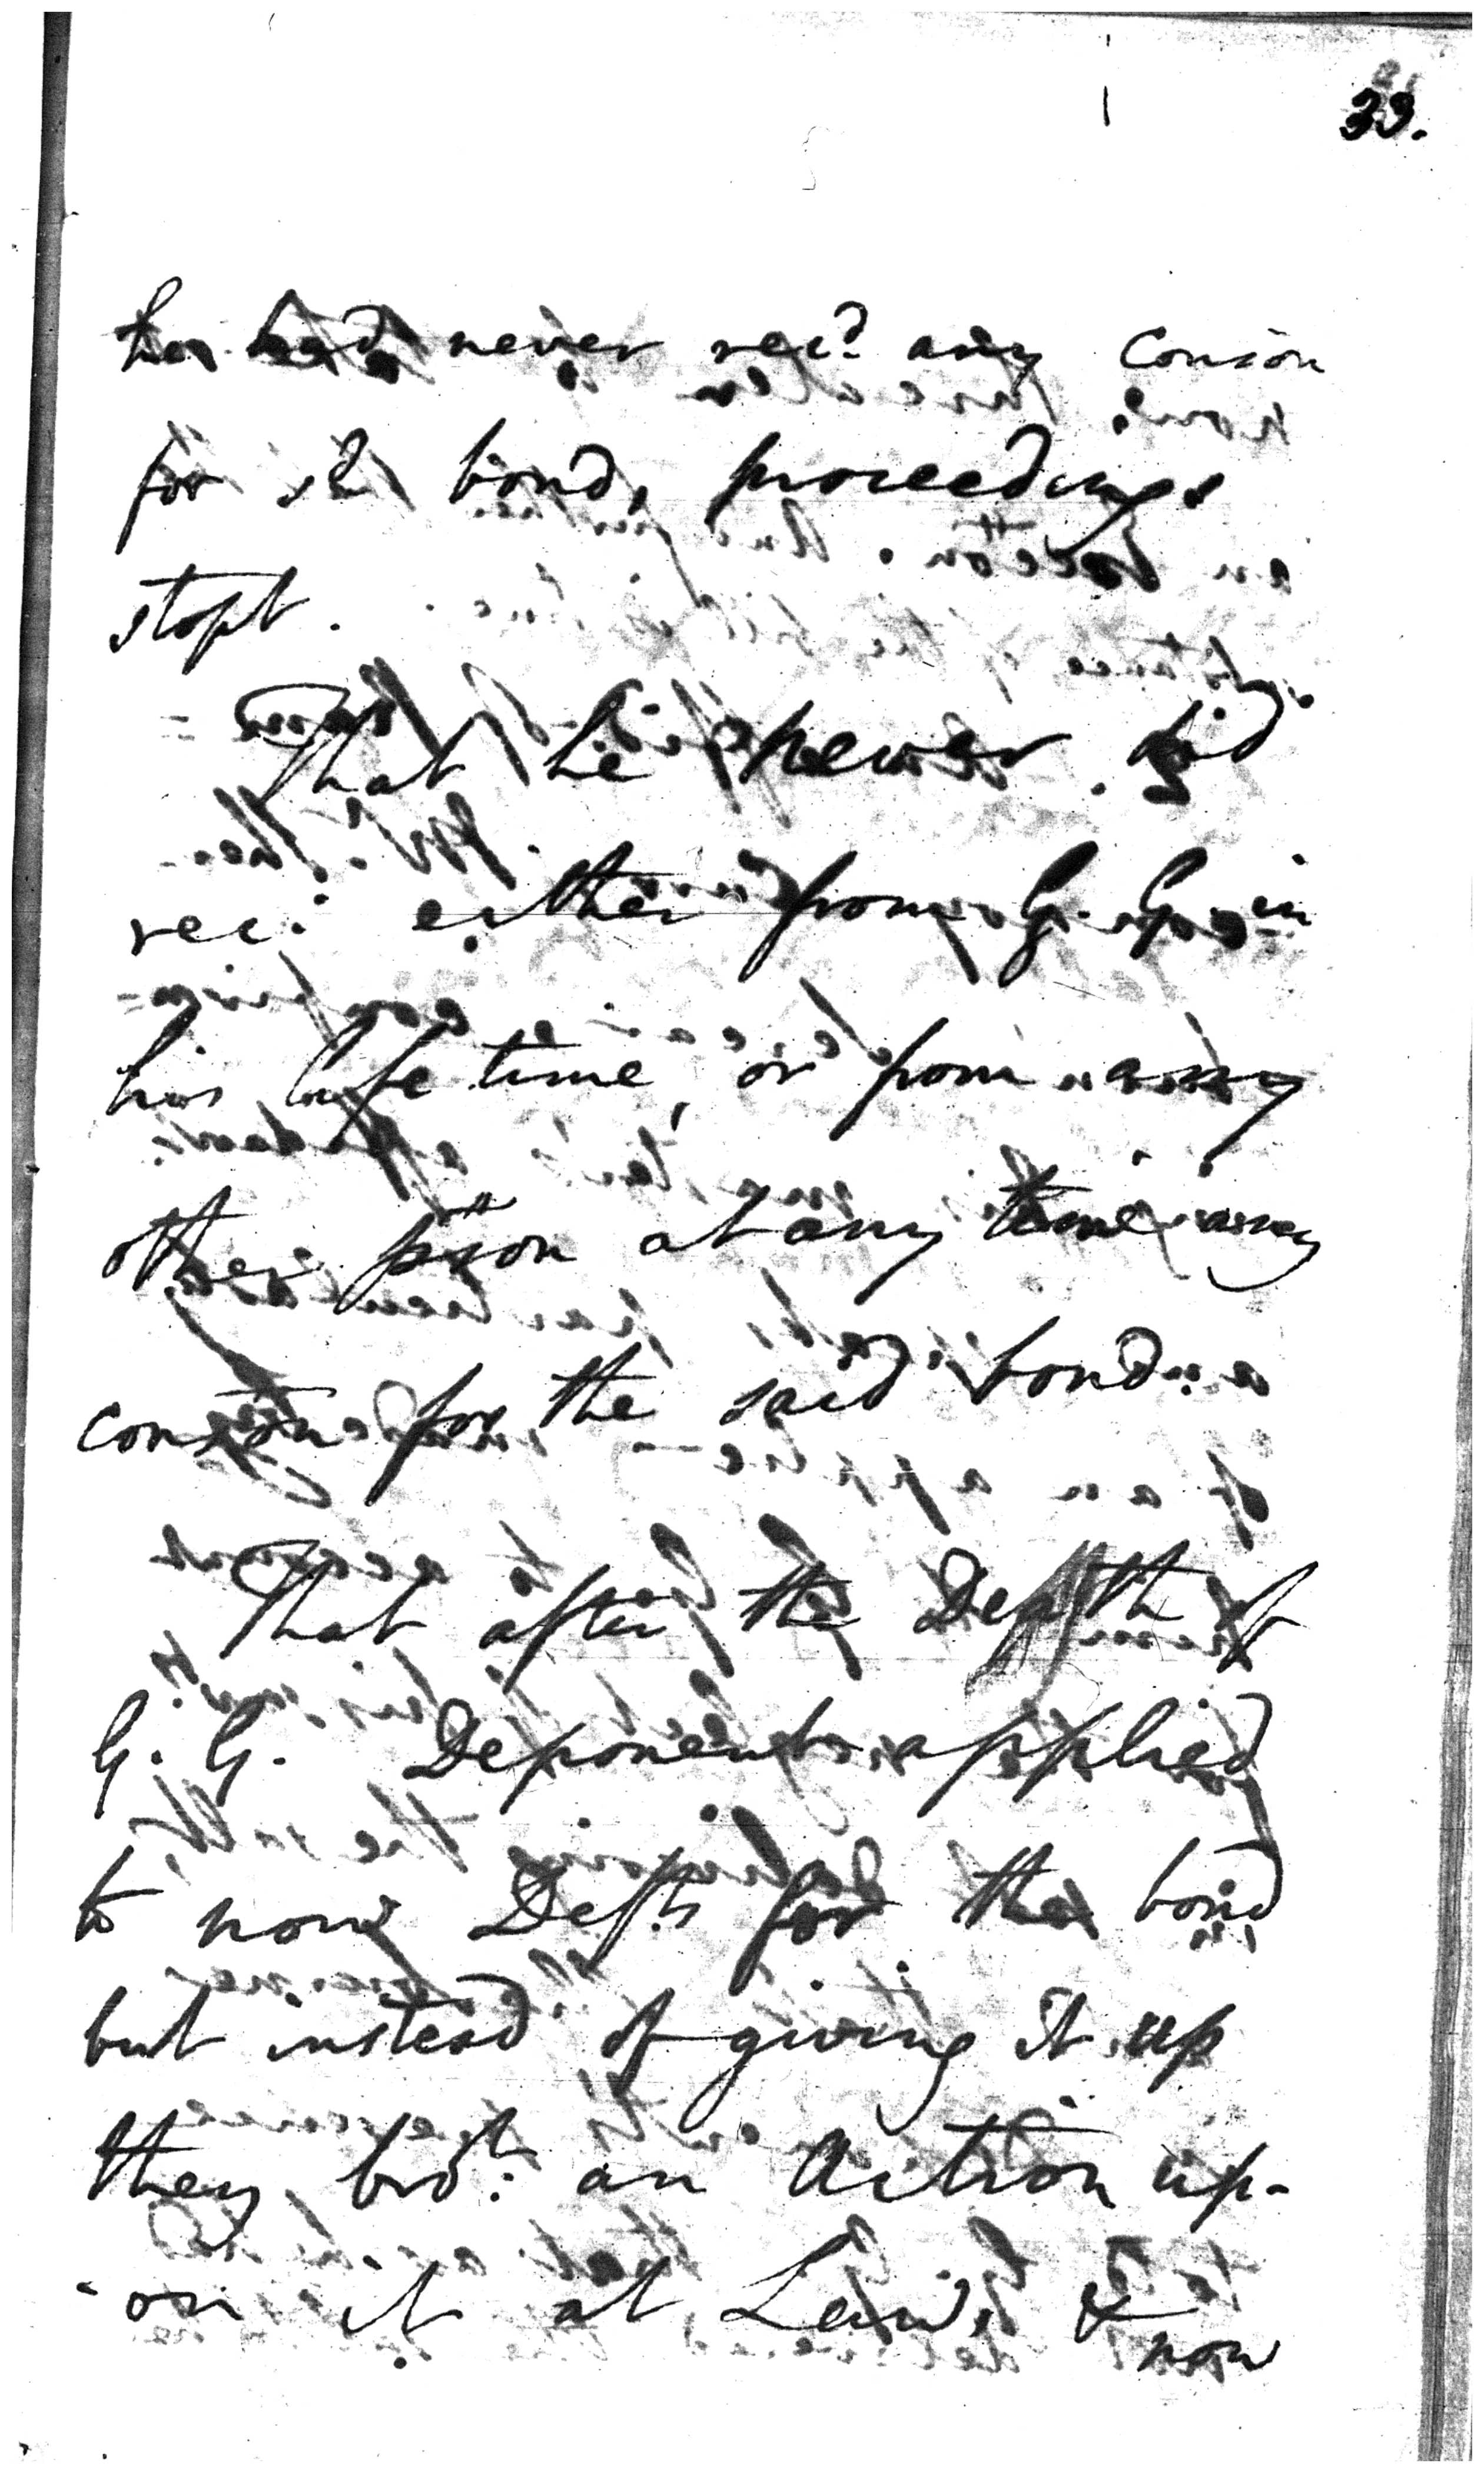 33.
he had never rec.d any Conson
for sd bond, proceedings
stopt.
That he never did
rec: either from G. G. in
his life time, or from any
other pson at any time any
conson for the said bond
That after the Death of
G. G. Deponent applied
to now Defts for the bond
but instead of giving it up
they bro.t: an Action up-
-on it at Law, &
now